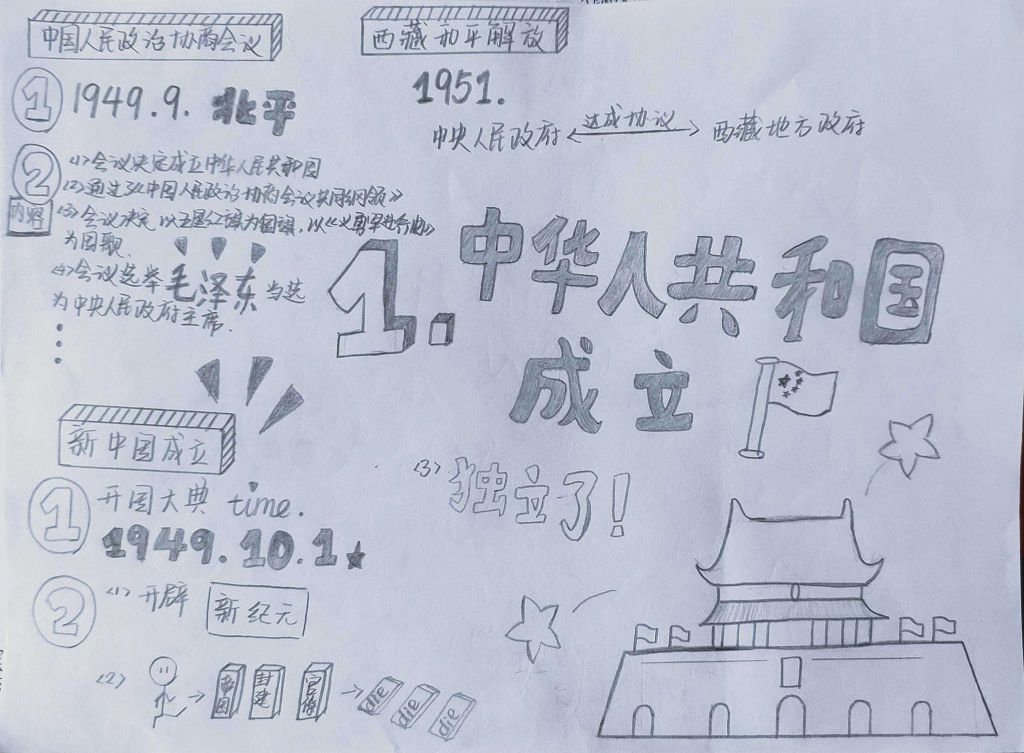 中国人民政治协商会议
① 1949.9. 北平
②
内容
<1>会议决定成立中华人民共和国
<2>通过了《中国人民政治协商会议共同纲领》
<3>会议决定,以五星红旗为国旗,以《义勇军进行曲》
为国歌.
<4>会议选举毛泽东当选
为中央人民政府主席.
西藏和平解放
1951.
中央人民政府 达成协议 西藏地方政府
1. 中华人共和国
成立
新中国成立
① 开国大典 time.
1949.10.1
② <1> 开辟 新纪元
<2> 帝国 封建 官僚 die die die
<3> 独立了!